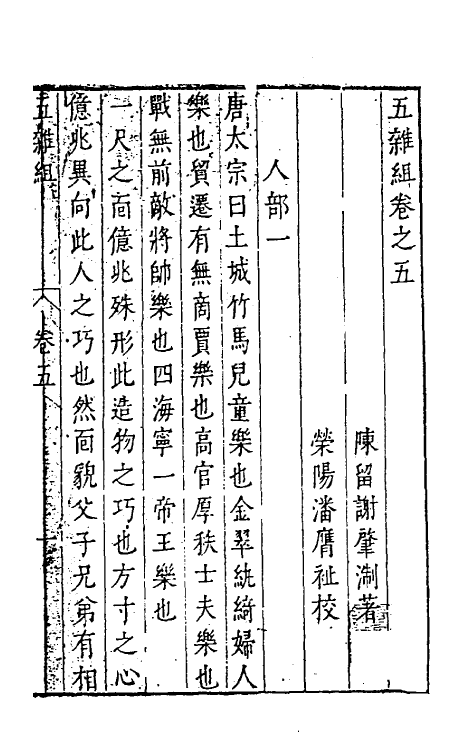 五雜組卷之五
陳留謝肇淛著
滎陽潘膺祉校
人部一
唐太宗曰土城竹馬兒童樂也金翠紈綺婦人
樂也貿遷有無商賈樂也高官厚秩士夫樂也
戰無前敵將帥樂也四海寧一帝王樂也
一尺之面億兆殊形此造物之巧也方寸之心
億兆異向此人之巧也然面貌父子兄弟有相
五雜組 卷五 一